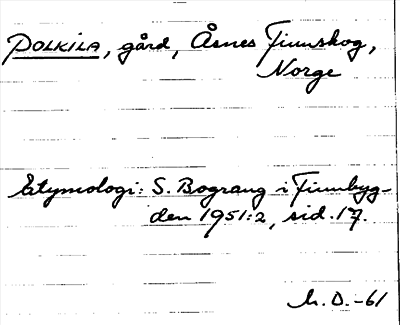 POLKILA, gård, Åsnes Finnskog,
Norge
Etymologi: S. Bograng i Finnbyg-
den 1951:2, sid. 17.
h. D. -61